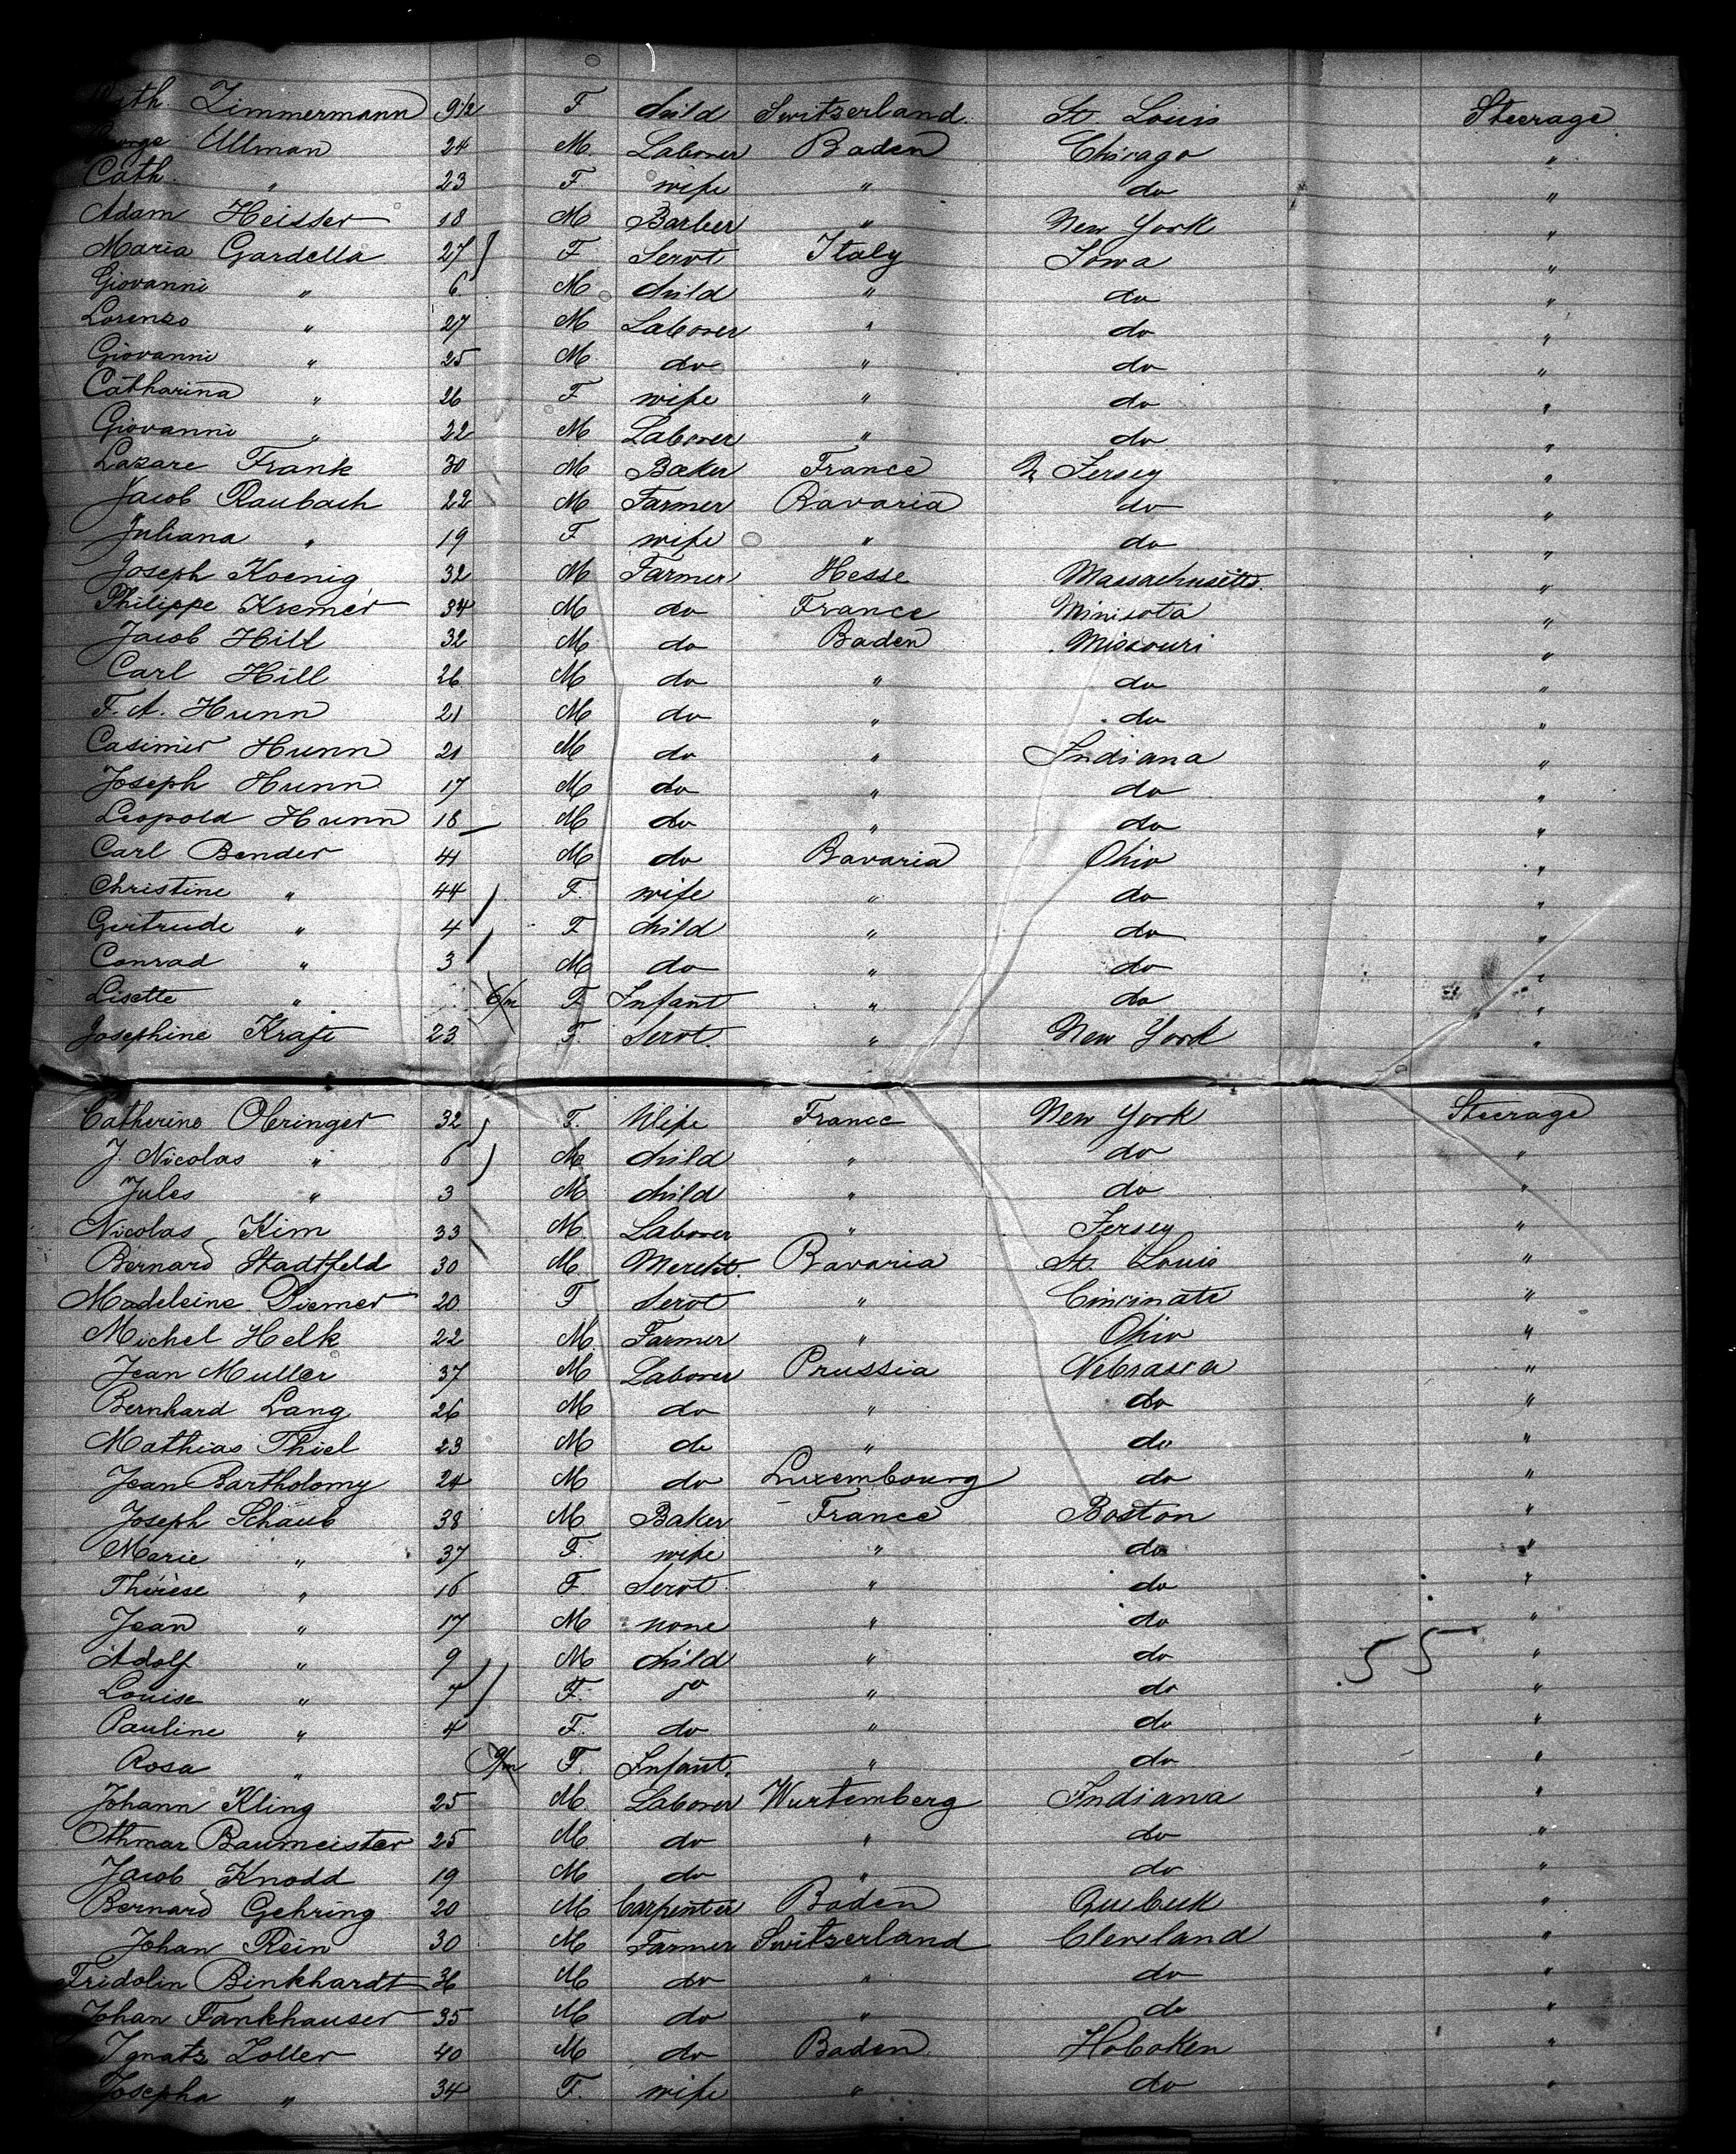 Zimmermann 9 1/2 F child Switserland. St. Louis Steerage
George Ullman 24 M. Laborer Baden Chicago "
Cath. " 23 F wife " do "
Adam Heisler 18 M Barber " New York "
Maria Gardella 27 F Servt Italy Iowa "
Giovanni " 6 M child " do "
Lorenzo " 27 M Laborer " do "
Giovanni " 25 M do " do "
Catharina " 26 F wife " do "
Giovanni " 22 M Laborer " do "
Lazare Frank 30 M Baker France N Jersey "
Jacob Raubach 22 M Farmer Bavaria do "
Juliana " 19 F wife " do "
Joseph Koenig 32 M Farmer Hesse Massachusetts. "
Philippe Kremer 34 M do France Minisota "
Jacob Hill 32 M do Baden Missouri "
Carl Hill 26 M do " do "
F. A. Hunn 21 M do " do "
Casimir Hunn 21 M do " Indiana "
Joseph Hunn 17 M do " do "
Leopold Hunn 18 M do " do "
Carl Bender 41 M do Bavaria Ohio "
Christine " 44 F. wife " do "
Gertrude " 4 F child " do "
Conrad " 3 M do " do "
Lisette " 6/m F Infant " do "
Josephine Kraft 23 F. Servt. " New York "
Catherine Obringer 32 F. Wife France New York Steerage
J. Nicolas " 6 M child " do "
Jules " 3 M child " do "
Nicolas Kim 33 M. Laborer " Jersey "
Bernard Stadtfeld 30 M Mercht. Bavaria St. Louis "
Madeleine Diemer 20 F Servt " Cincinate "
Michel Helk 22 M. Farmer " Ohio "
Jean Muller 37 M Laborer Prussia Nebraska "
Bernhard Lang 26 M do " do "
Mathias Thiel 23 M do " do "
Jean Bartholomy 24 M do Luxembourg do "
Joseph Schaub 38 M Baker France Boston "
Marie " 37 F. wife " do "
Thérèse " 16 F Servt. " do "
Jean " 17 M none " do "
Adolf " 9 M child " do 55 "
Louise " 7 F. do " do "
Pauline " 4 F. do " do "
Rosa " 9/m F. Infant. " do "
Johann Kling 25 M. Laborer Wurtemberg Indiana "
Othmar Baumeister 25 M do " do "
Jacob Knodd 19 M do " do "
Bernard Gehring 20 M Carpenter Baden Quebeck "
Johan Rein 30 M Farmer Switserland Cleveland "
Fridolin Binkhardt 36 M do " do "
Johan Fankhauser 35 M do " do "
Ignatz Zoller 40 M do Baden Hoboken "
Josepha " 34 F. wife " do "